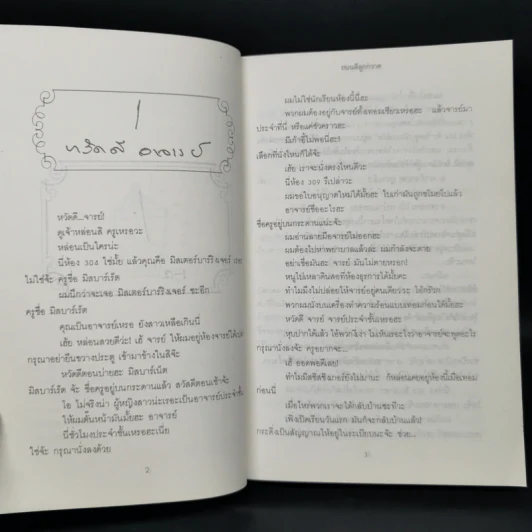 1
หวัดดี อาจารย์
หวัดดี...จารย์!
ดูเจ้าหล่อนสิ ครูเหรอวะ
หล่อนเป็นใครน่ะ
นี่ห้อง 304 ใช่มั้ย แล้วคุณคือ มิสเตอร์บาร์ริงเจอร์ เหรอ
ไม่ใช่จ้ะ ครูชื่อ มิสบาร์เร็ต
ผมนึกว่าจะเจอ มิสเตอร์บาร์ริงเจอร์ ซะอีก...
ครูชื่อ มิสบาร์เร็ต
คุณเป็นอาจารย์เหรอ ยังสาวเหลือเกินนี่
เฮ้ย หล่อนสวยดีว่ะ! เฮ้ จารย์ ให้ผมอยู่ห้องจารย์ได้
กรุณาอย่ายืนขวางประตู เข้ามาข้างในสิจ๊ะ
หวัดดีตอนบ่ายฮะ มิสบาร์เน็ต
มิสบาร์เร็ต จ้ะ ชื่อครูอยู่บนกระดานแล้ว สวัสดีตอนเช้าจ้ะ
โอ ไม่จริงน่า ผู้หญิงสาวน่ะเรอะเป็นอาจารย์ประจำชั้น
ให้ผมตื้นหน้ามันมั้ยฮะ อาจารย์
นี่ชั่วโมงประจำชั้นเหรอฮะเนี่ย
ใช่จ้ะ กรุณานั่งลงด้วย
2
ผมไม่ใช่นักเรียนห้องนี้นี่ฮะ
พวกผมต้องอยู่กับจารย์ทั้งเทอมเชียวเหรอฮะ แล้วจารย์มา
ประจำที่นี่ หรือแค่ชั่วคราวฮะ
มีเก้าอี้ไม่พอนี่ฮะ!
เลือกที่นั่งไหนก็ได้จ้ะ
เฮ้ย เราจะนั่งตรงไหนดีวะ
นี่ห้อง 309 รึเปล่าวะ
ผมขอใบอนุญาตใหม่ได้มั้ยฮะ ใบเก่ามันถูกขโมยไปแล้ว
อาจารย์ชื่ออะไรฮะ
ชื่อครูอยู่บนกระดานแน่ะจ้ะ
ผมอ่านลายมือจารย์ไม่ออกฮะ
ผมต้องไปหาพยาบาลแล้วล่ะ ผมกำลังจะตาย
อย่าเชื่อมันฮะ จารย์ มันไม่ตายหรอก!
ทำไมถึงไม่ปล่อยให้จารย์อยู่คนเดียววะ ไอ้กร๊วก
หวัดดี จารย์ จารย์ประจำชั้นเหรอฮะ
กรุณานั่งลงจ้ะ ครูอยากจะ...
เฮ้ ออดพอดีเลย!
ก่อนนี่
เมื่อไหร่พวกเราจะได้กลับบ้านซะทีวะ
เพิ่งเปิดเรียนวันแรก มันก็จะกลับบ้านแล้ว!
กระดิ่งเป็นสัญญาณให้อยู่ในระเบียบนะจ๊ะ ช่วย...
3